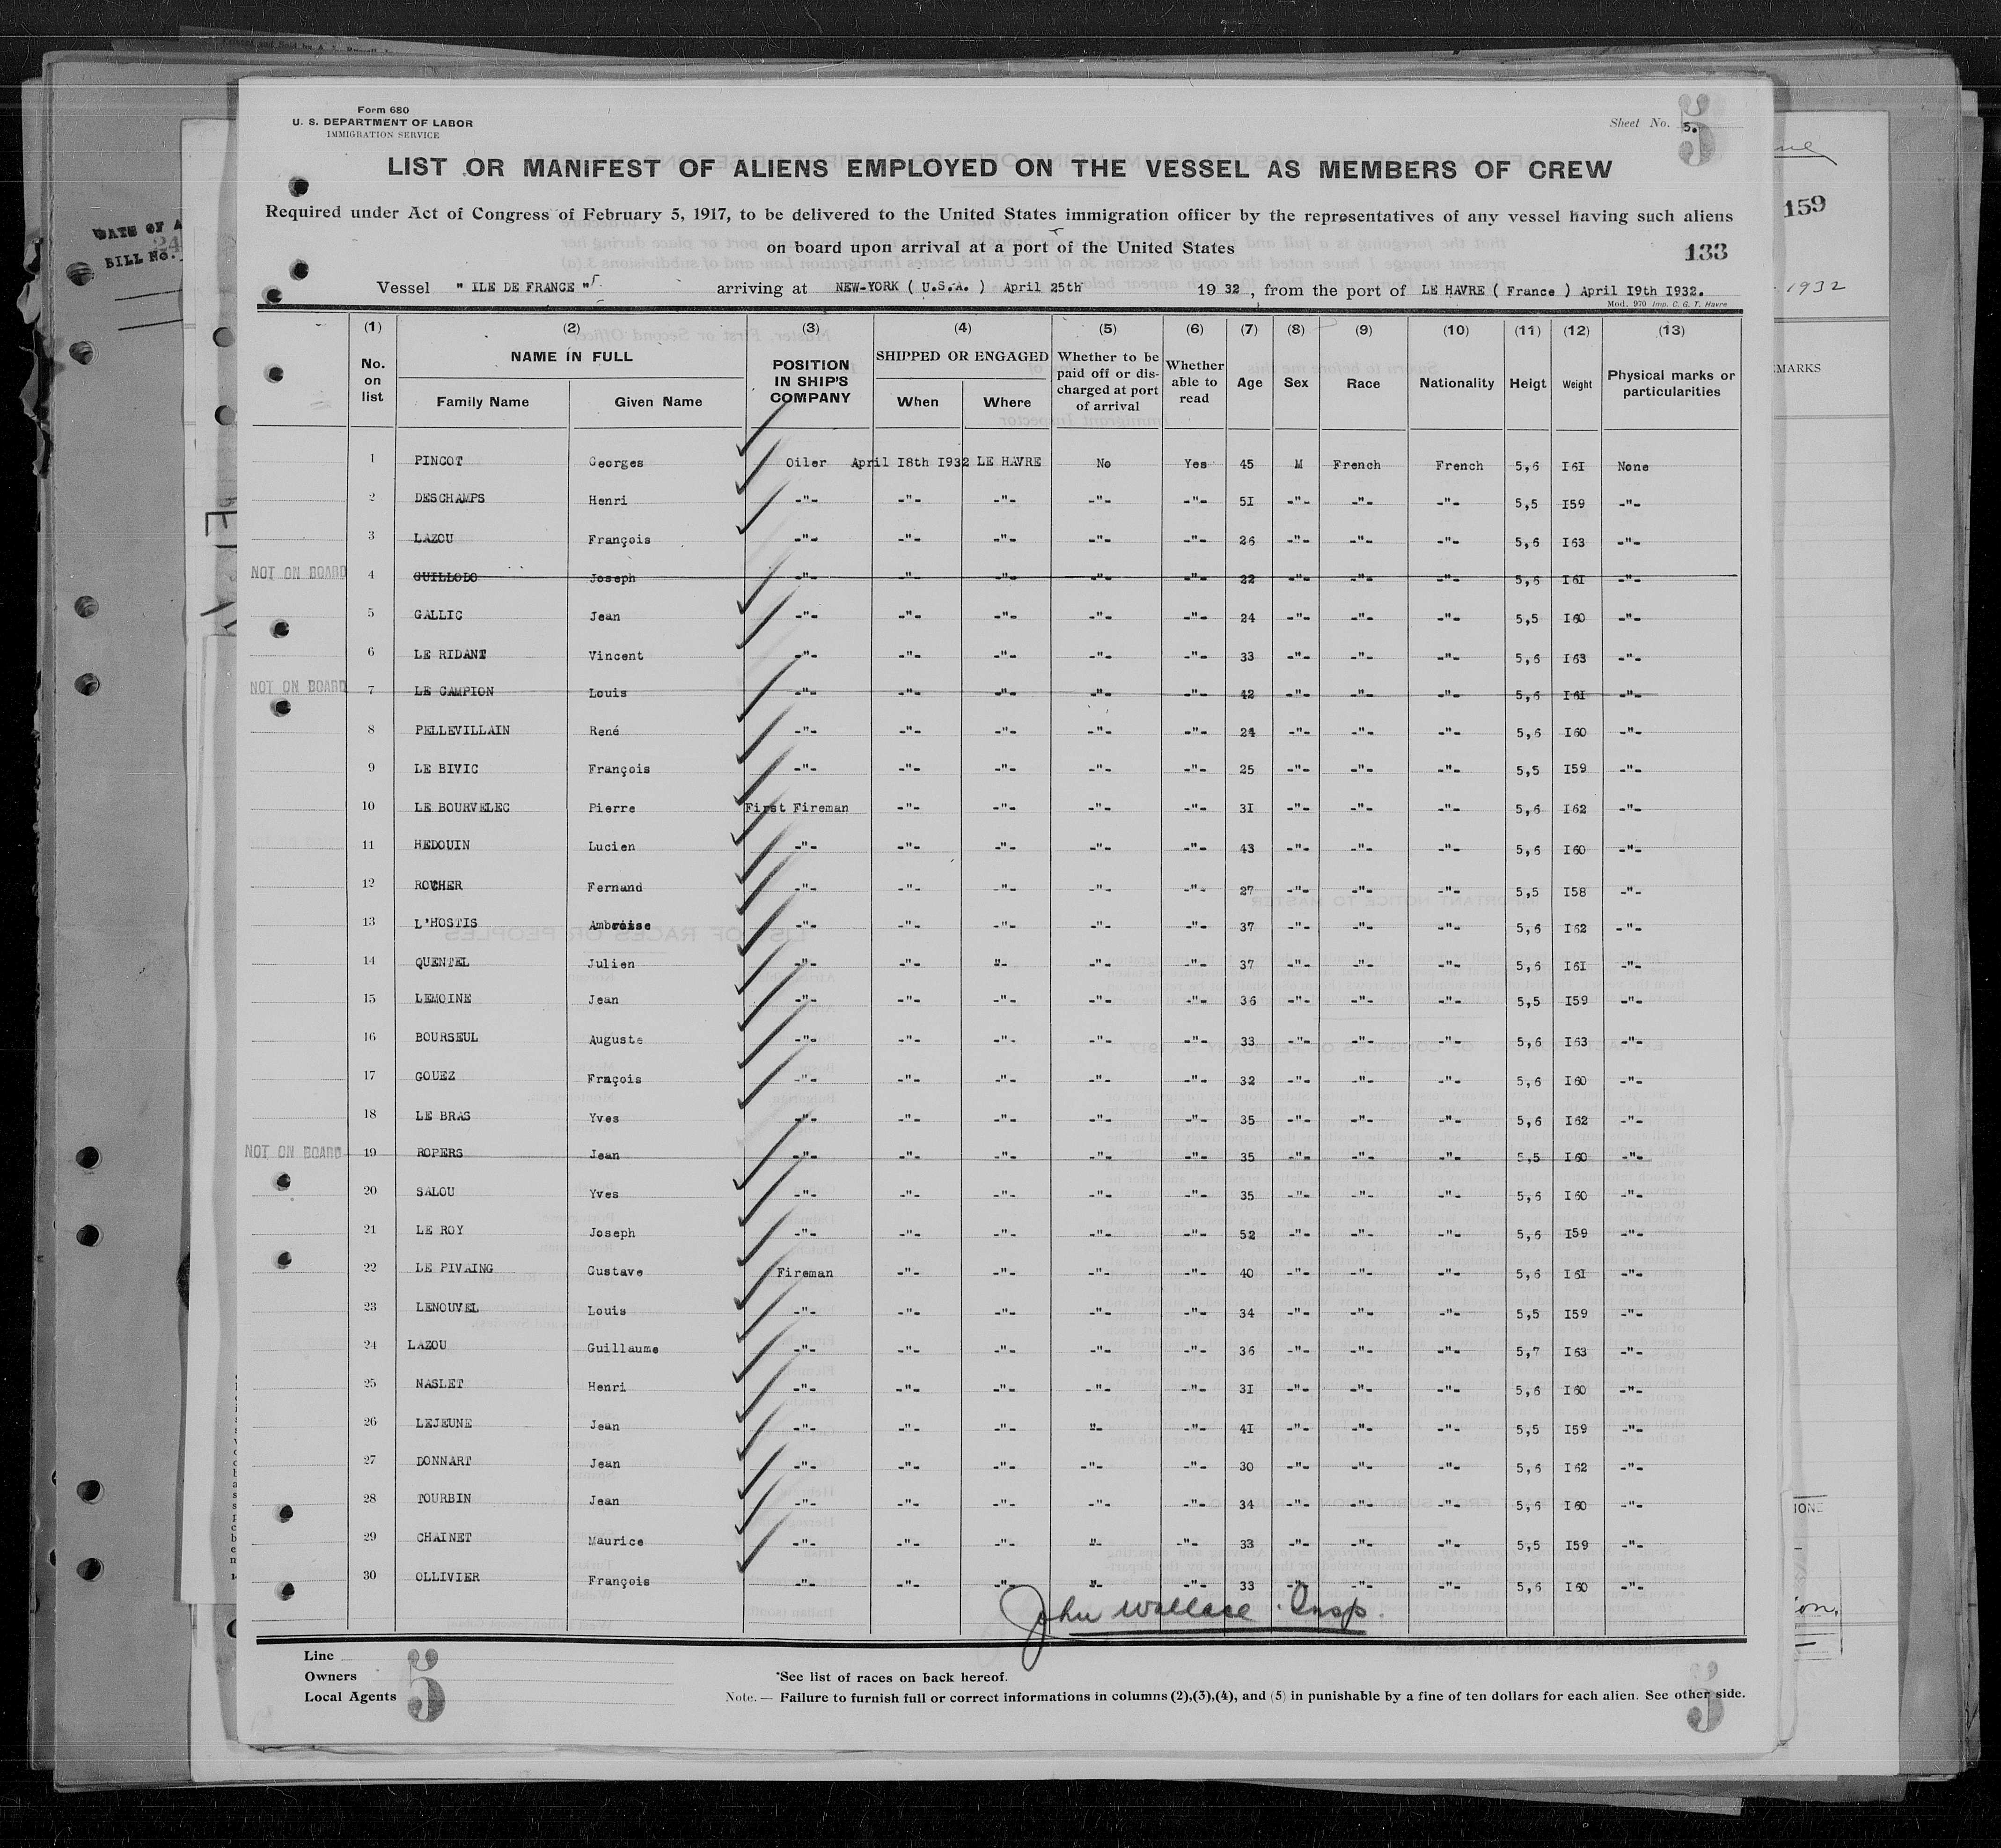 Form 680
U. S. DEPARTMENT OF LABOR
IMMIGRATION SERVICE
Sheet No. 5.
5
LIST OR MANIFEST OF ALIENS EMPLOYED ON THE VESSEL AS MEMBERS OF CREW
Required under Act of Congress of February 5, 1917, to be delivered to the United States immigration officer by the representatives of any vessel having such aliens
on board upon arrival at a port of the United States
133
159
DATE OF A
24
BILL No.
Vessel " ILE DE FRANCE " arriving at NEW-YORK ( U.S.A. ) April 25th 1932, from the port of LE HAVRE ( France ) April I9th I932.
1932
Mod. 970 Imp. C. G. T. Havre
(1) (2) (3) (4) (5) (6) (7) (8) (9) (10) (11) (12) (13)
No. on list NAME IN FULL Family Name Given Name POSITION IN SHIP'S COMPANY SHIPPED OR ENGAGED When Where Whether to be paid off or discharged at port of arrival Whether able to read Age Sex Race Nationality Heigt Weight Physical marks or particularities
1 PINCOT Georges Oiler April I8th I932 LE HAVRE No Yes 45 M French French 5,6 I6I None
2 DESCHAMPS Henri -"- -"- -"- -"- -"- 5I -"- -"- -"- 5,5 I59 -"-
3 LAZOU François -"- -"- -"- -"- -"- 26 -"- -"- -"- 5,6 I63 -"-
NOT ON BOARD 4 GUILLODO Joseph -"- -"- -"- -"- -"- 22 -"- -"- -"- 5,6 I6I -"-
5 GALLIC Jean -"- -"- -"- -"- -"- 24 -"- -"- -"- 5,5 I60 -"-
6 LE RIDANT Vincent -"- -"- -"- -"- -"- 33 -"- -"- -"- 5,6 I63 -"-
NOT ON BOARD 7 LE CAMPION Louis -"- -"- -"- -"- -"- 42 -"- -"- -"- 5,6 I6I -"-
8 PELLEVILLAIN René -"- -"- -"- -"- -"- 24 -"- -"- -"- 5,6 I60 -"-
9 LE BIVIC François -"- -"- -"- -"- -"- 25 -"- -"- -"- 5,5 I59 -"-
10 LE BOURVELEC Pierre First Fireman -"- -"- -"- -"- 3I -"- -"- -"- 5,6 I62 -"-
11 HEDOUIN Lucien -"- -"- -"- -"- -"- 43 -"- -"- -"- 5,6 I60 -"-
12 ROUHER Fernand -"- -"- -"- -"- -"- 27 -"- -"- -"- 5,5 I58 -"-
13 L'HOSTIS Ambroise -"- -"- -"- -"- -"- 37 -"- -"- -"- 5,6 I62 -"-
14 QUENTEL Julien -"- -"- "- -"- -"- 37 -"- -"- -"- 5,6 I6I -"-
15 LEMOINE Jean -"- -"- -"- -"- -"- 36 -"- -"- -"- 5,5 I59 -"-
16 BOURSEUL Auguste -"- -"- -"- -"- -"- 33 -"- -"- -"- 5,6 I63 -"-
17 GOUEZ Frnçois -"- -"- -"- -"- -"- 32 -"- -"- -"- 5,6 I60 -"-
18 LE BRAS Yves -"- -"- -"- -"- -"- 35 -"- -"- -"- 5,6 I62 -"-
NOT ON BOARD 19 ROPERS Jean -"- -"- -"- -"- -"- 35 -"- -"- -"- 5,5 I60 -"-
20 SALOU Yves -"- -"- -"- -"- -"- 35 -"- -"- -"- 5,6 I60 -"-
21 LE ROY Joseph -"- -"- -"- -"- -"- 52 -"- -"- -"- 5,6 I59 -"-
22 LE PIVAING Gustave Fireman -"- -"- -"- -"- 40 -"- -"- -"- 5,6 I6I -"-
23 LENOUVEL Louis -"- -"- -"- -"- -"- 34 -"- -"- -"- 5,5 I59 -"-
24 LAZOU Guillaume -"- -"- -"- -"- -"- 36 -"- -"- -"- 5,7 I63 -"-
25 NASLET Henri -"- -"- -"- -"- -"- 3I -"- -"- -"- 5,6 I60 -"-
26 LEJEUNE Jean -"- -"- -"- "- -"- 4I -"- -"- -"- 5,5 I59 -"-
27 DONNART Jean -"- -"- -"- -"- -"- 30 -"- -"- -"- 5,6 I62 -"-
28 TOURBIN Jean -"- -"- -"- -"- -"- 34 -"- -"- -"- 5,6 I60 -"-
29 CHAINET Maurice -"- -"- -"- "- -"- 33 -"- -"- -"- 5,5 I59 -"-
30 OLLIVIER François -"- -"- -"- "- -"- 33 -"- -"- -"- 5,6 I60 -"-
John Wallace Insp.
Line
Owners
Local Agents
5
*See list of races on back hereof.
Note. — Failure to furnish full or correct informations in columns (2),(3),(4), and (5) in punishable by a fine of ten dollars for each alien. See other side.
5